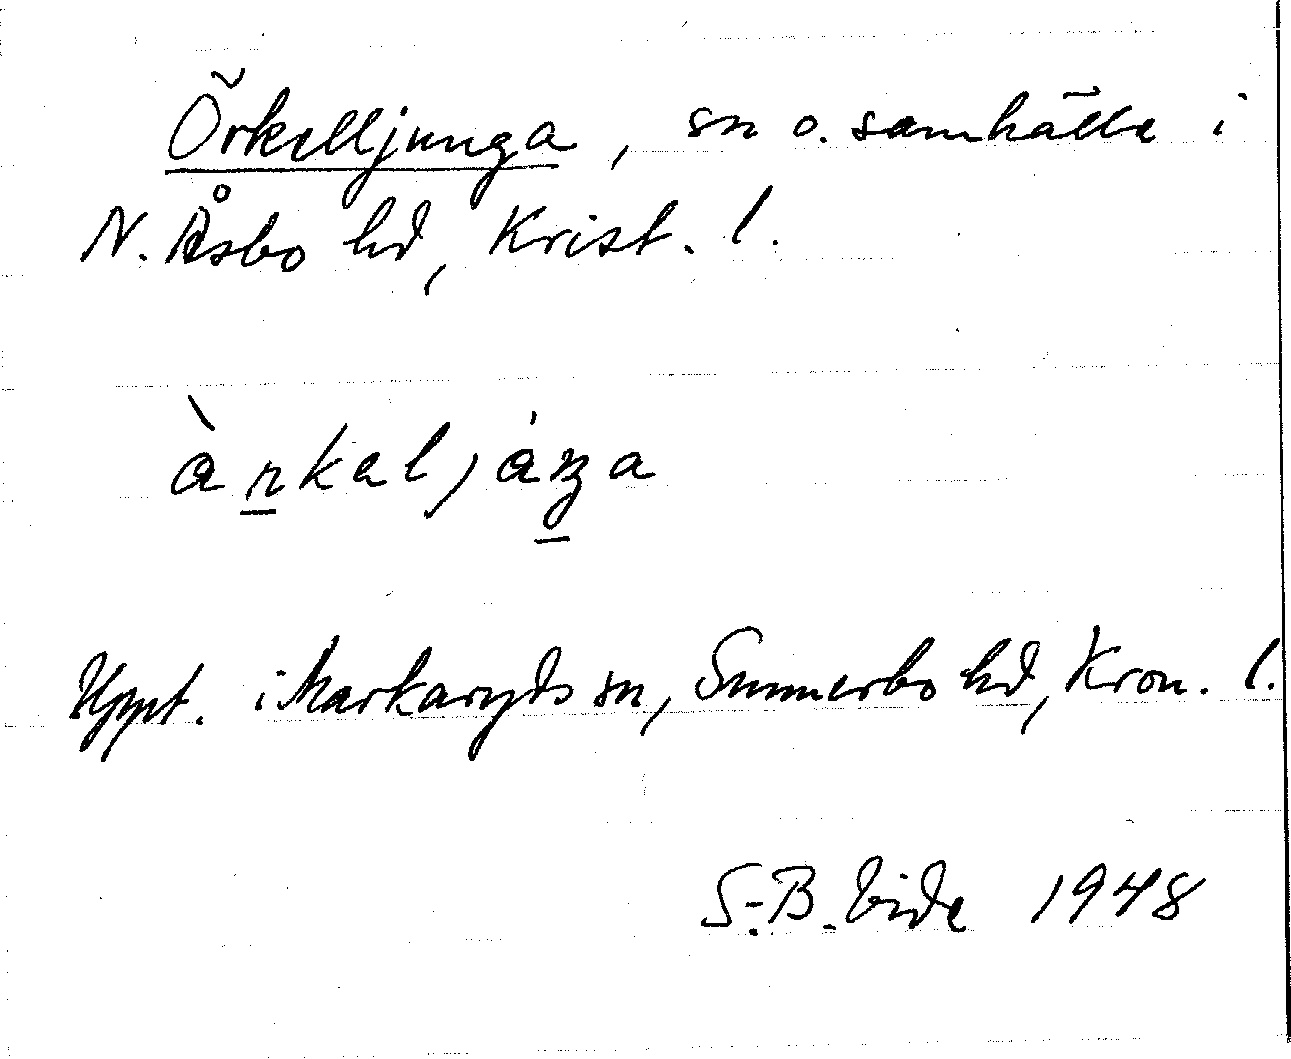 Örkelljunga, sn o. samhälle i
N. Åsbo hd, Krist. l.
àrkaljáŋa
Uppt. i Markaryds sn, Sunnerbo hd, Kron. l.
S.-B. Vide 1948